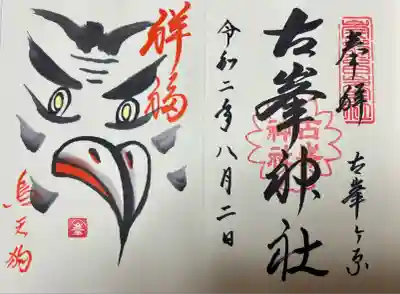 奉拝
古峯ヶ原
古峯神社
令和二年八月二日
祥福
烏天狗